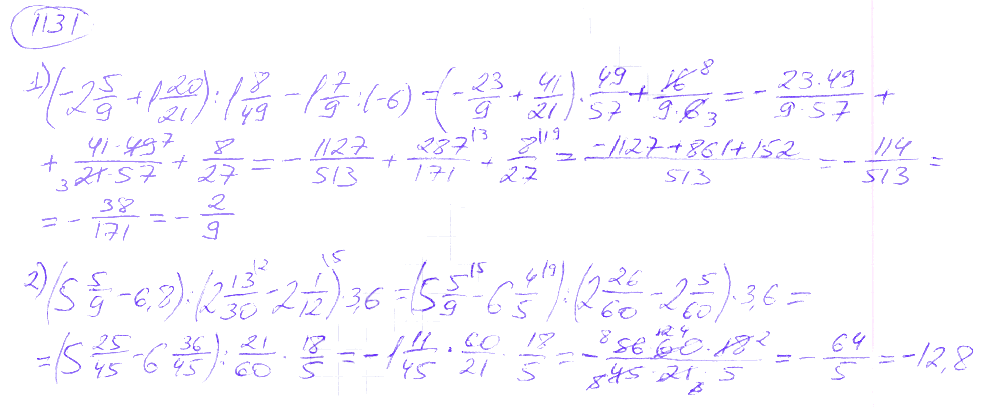 1131
1) (-2 5/9 + 1 20/21) : 1 8/49 - 1 7/9 : (-6) = (-23/9 + 41/21) · 49/57 + 16⁸/(9·6₃) = -(23·49)/(9·57) +
+ (41·49⁷)/(₃21·57) + 8/27 = -1127/513 + 287/171 ⁽³ + 8/27 ⁽¹⁹ = (-1127+861+152)/513 = -114/513 =
= -38/171 = -2/9
2) (5 5/9 - 6,8) : (2 13/30 ⁽² - 2 1/12 ⁽⁵) · 3,6 = (5 5/9 ⁽⁵ - 6 4/5 ⁽⁹) : (2 26/60 - 2 5/60) · 3,6 =
= (5 25/45 - 6 36/45) : 21/60 · 18/5 = -1 11/45 · 60/21 · 18/5 = - 56 60 · 18² / 45 · 21 · 5 = -64/5 = -12,8